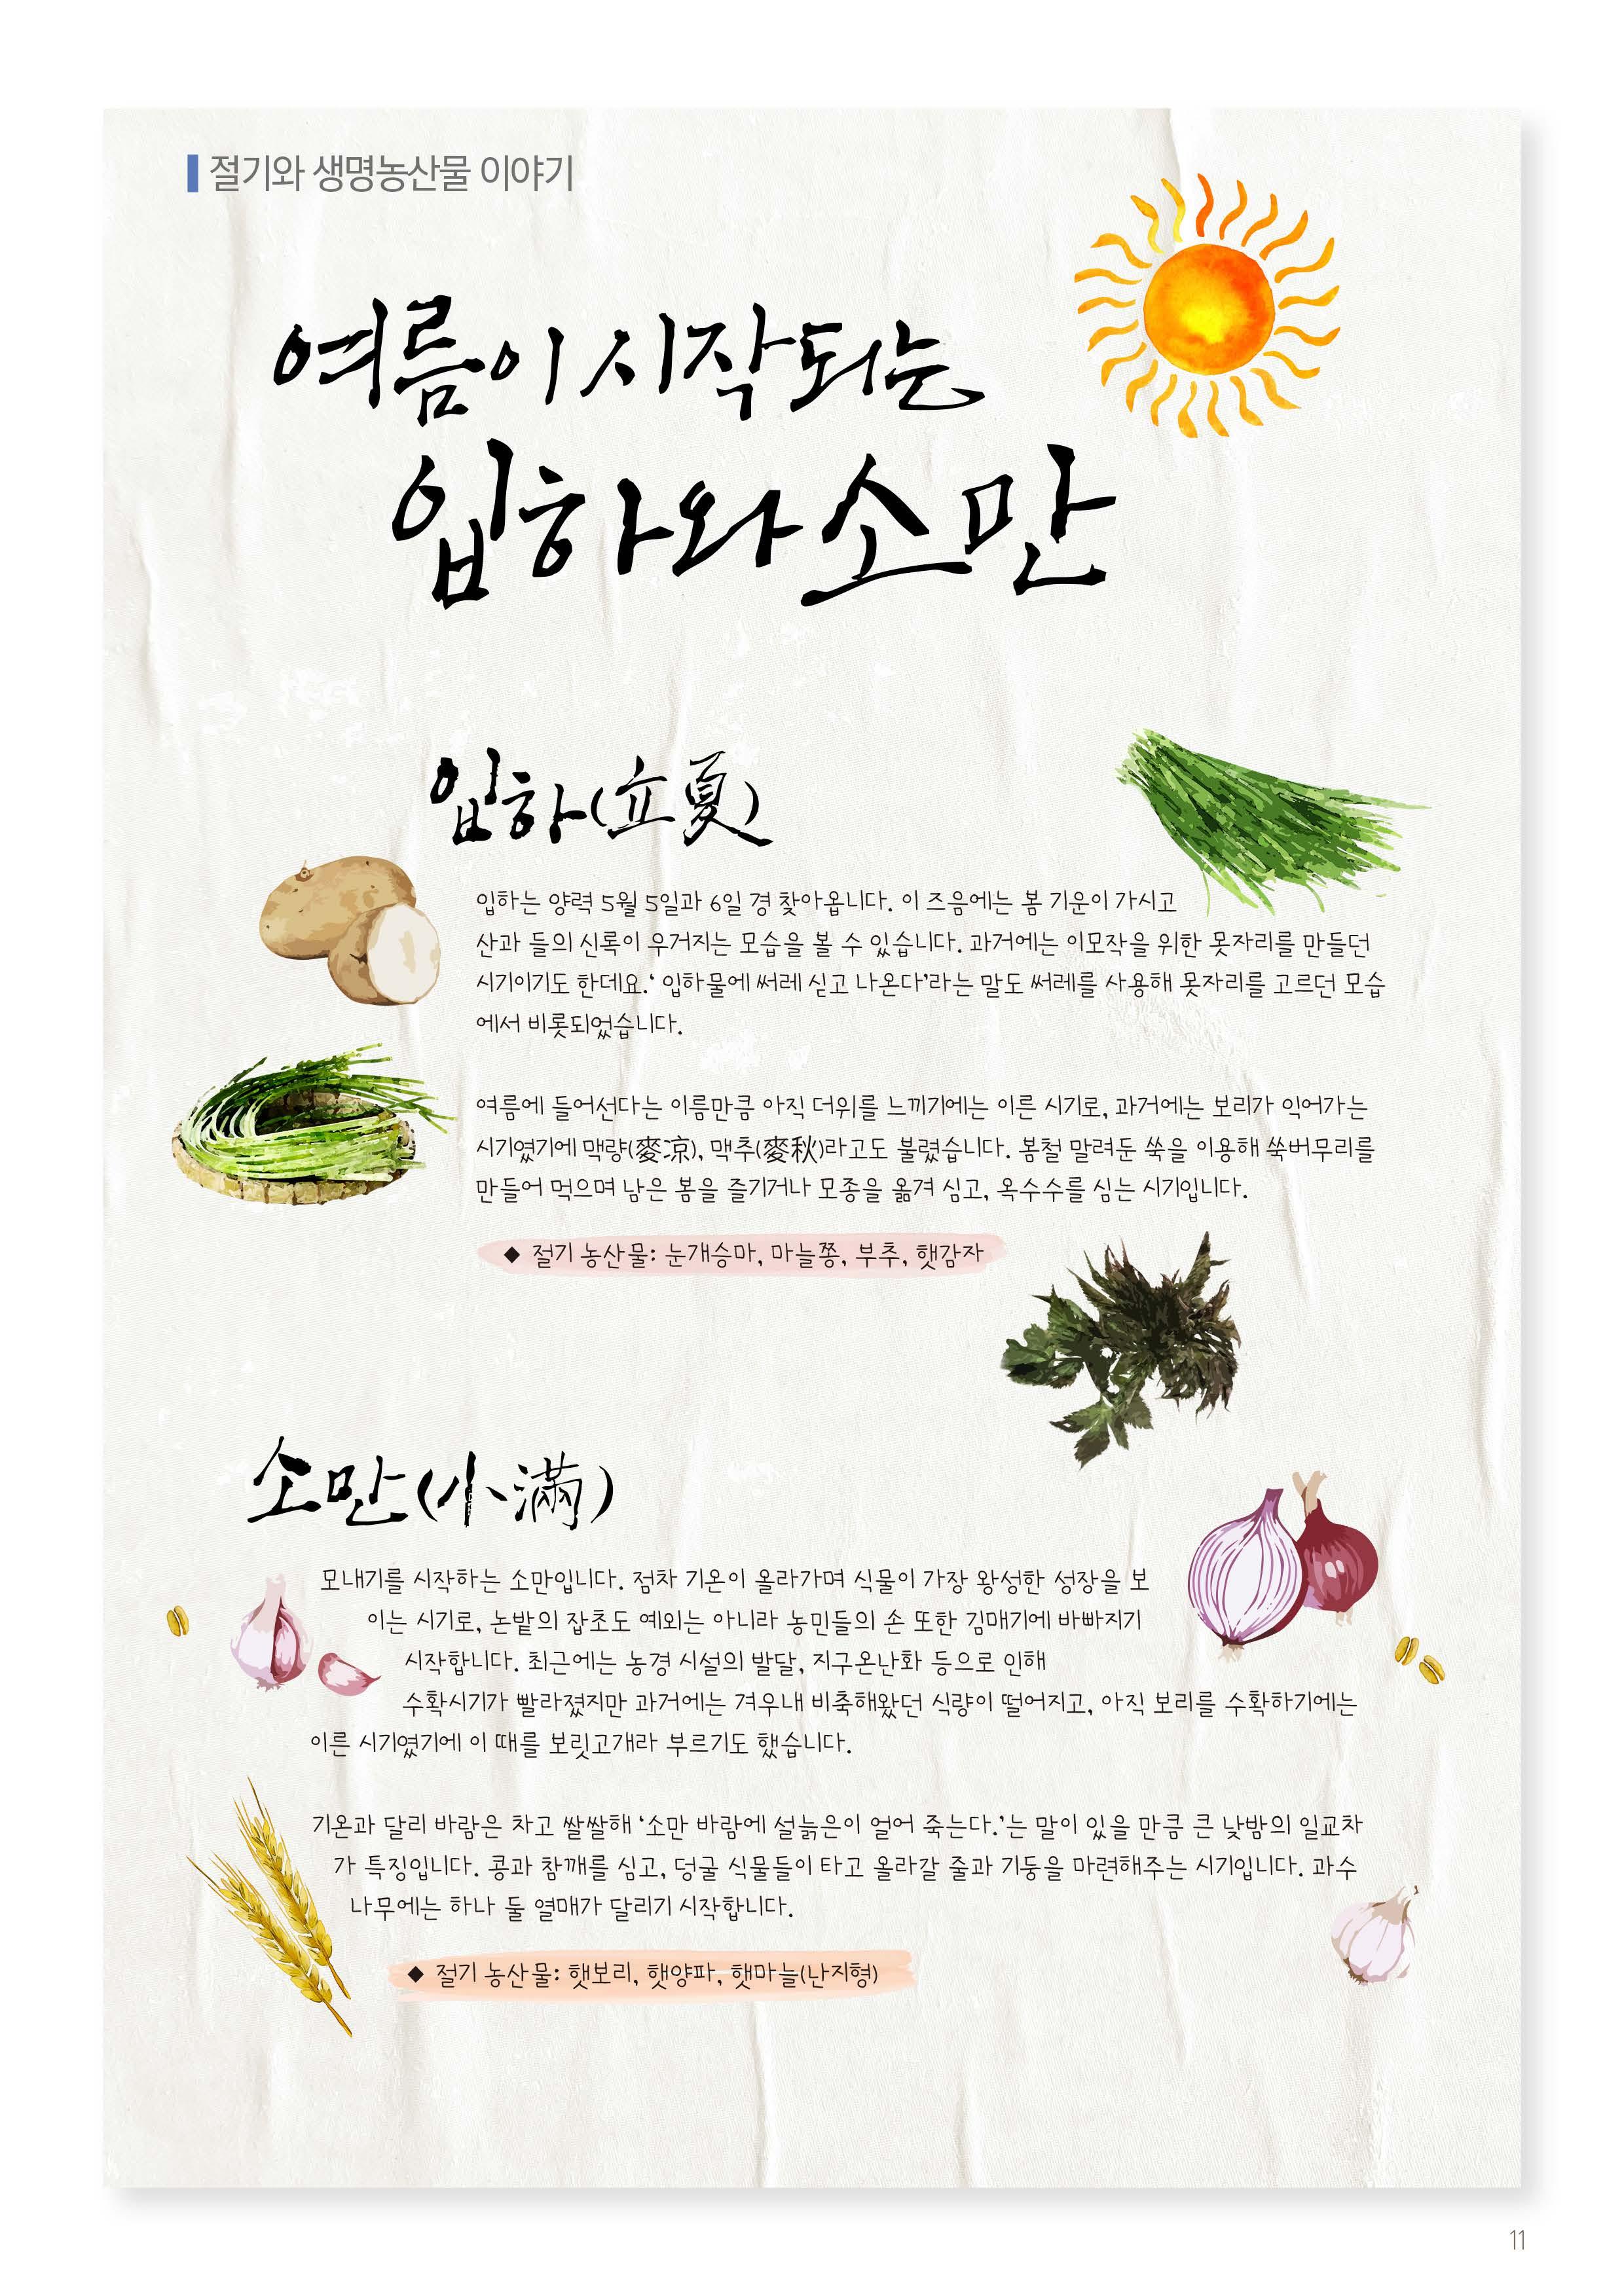 절기와 생명농산물 이야기
여름이 시작되는
입하와 소만
입하(立夏)
입하는 양력 5월 5일과 6일 경 찾아옵니다. 이 즈음에는 봄 기운이 가시고
산과 들의 신록이 우거지는 모습을 볼 수 있습니다. 과거에는 이모작을 위한 못자리를 만들던
시기이기도 한데요.‘ 입하물에 써레 싣고 나온다’라는 말도 써레를 사용해 못자리를 고르던 모습
에서 비롯되었습니다.
여름에 들어선다는 이름만큼 아직 더위를 느끼기에는 이른 시기로, 과거에는 보리가 익어가는
시기였기에 맥량(麥凉), 맥추(麥秋)라고도 불렸습니다. 봄철 말려둔 쑥을 이용해 쑥버무리를
만들어 먹으며 남은 봄을 즐기거나 모종을 옮겨 심고, 옥수수를 심는 시기입니다.
◆ 절기 농산물: 눈개승마, 마늘쫑, 부추, 햇감자
소만(小滿)
모내기를 시작하는 소만입니다. 점차 기온이 올라가며 식물이 가장 왕성한 성장을 보
이는 시기로, 논밭의 잡초도 예외는 아니라 농민들의 손 또한 김매기에 바빠지기
시작합니다. 최근에는 농경 시설의 발달, 지구온난화 등으로 인해
수확시기가 빨라졌지만 과거에는 겨우내 비축해왔던 식량이 떨어지고, 아직 보리를 수확하기에는
이른 시기였기에 이 때를 보릿고개라 부르기도 했습니다.
기온과 달리 바람은 차고 쌀쌀해 ‘소만 바람에 설늙은이 얼어 죽는다.’는 말이 있을 만큼 큰 낮밤의 일교차
가 특징입니다. 콩과 참깨를 심고, 덩굴 식물들이 타고 올라갈 줄과 기둥을 마련해주는 시기입니다. 과수
나무에는 하나 둘 열매가 달리기 시작합니다.
◆ 절기 농산물: 햇보리, 햇양파, 햇마늘(난지형)
11